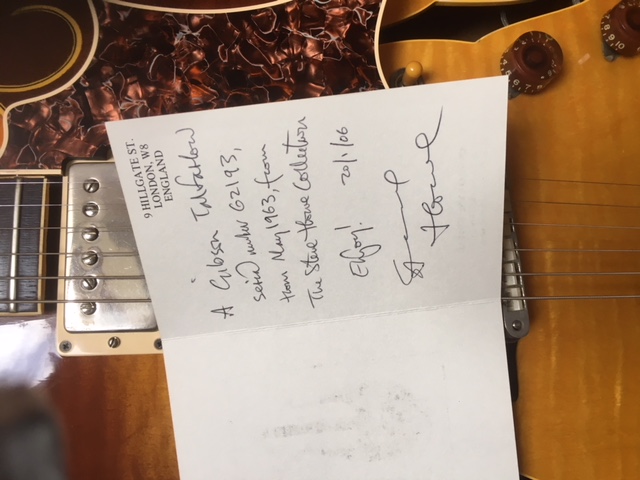 9 HILLGATE ST.
LONDON, W8
ENGLAND
A Gibson Tal Farlow
serial number 62193,
from May 1963, from
The Steve Howe Collection
Enjoy! 20/1/06
Steve
Howe